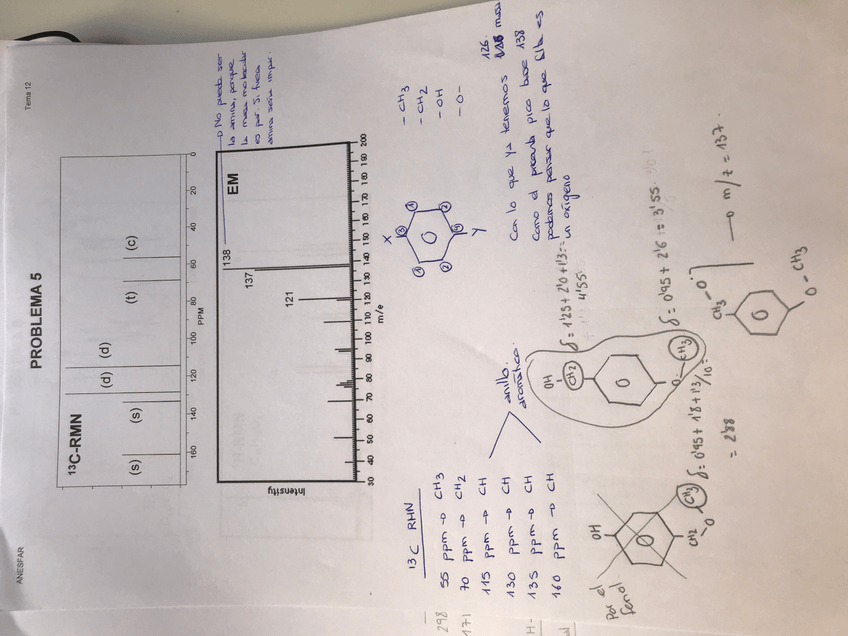 ANESFAR
Tema 12
PROBLEMA 5
¹³C-RMN
(s)
(s)
(d)
(d)
(t)
(c)
160
140
120
100
80
60
40
20
0
PPM
EM
Intensity
121
137
138
30 40 50 60 70 80 90 100 110 120 130 140 150 160 170 180 190 200
m/e
→ No puede ser
la amina, porque
la masa molecular
es par. Si fuera
amina sería impar.
¹³C RMN
55 ppm → CH3
70 ppm → CH2
115 ppm → CH
130 ppm → CH
135 ppm → CH
160 ppm → CH
anillo
aromático.
X
3
1
1
O
2
2
4
Y
- CH3
- CH2
- OH
- O -
Con lo que ya tenemos 126 masa
como el presenta pico base 138
podemos pensar que lo que falta es
un oxígeno
298
171
H-
Por el
fenol
OH
O
CH2
O
CH3
δ = 0'95 + 1'8 + 1'3/10 =
= 2'88
OH
CH2
δ = 1'25 + 2'0 + 1'3 =
4'55
O
O
CH3
δ = 0'95 + 2'6 = 3'55
CH3 - O
O
O - CH3
→ m/z = 137.